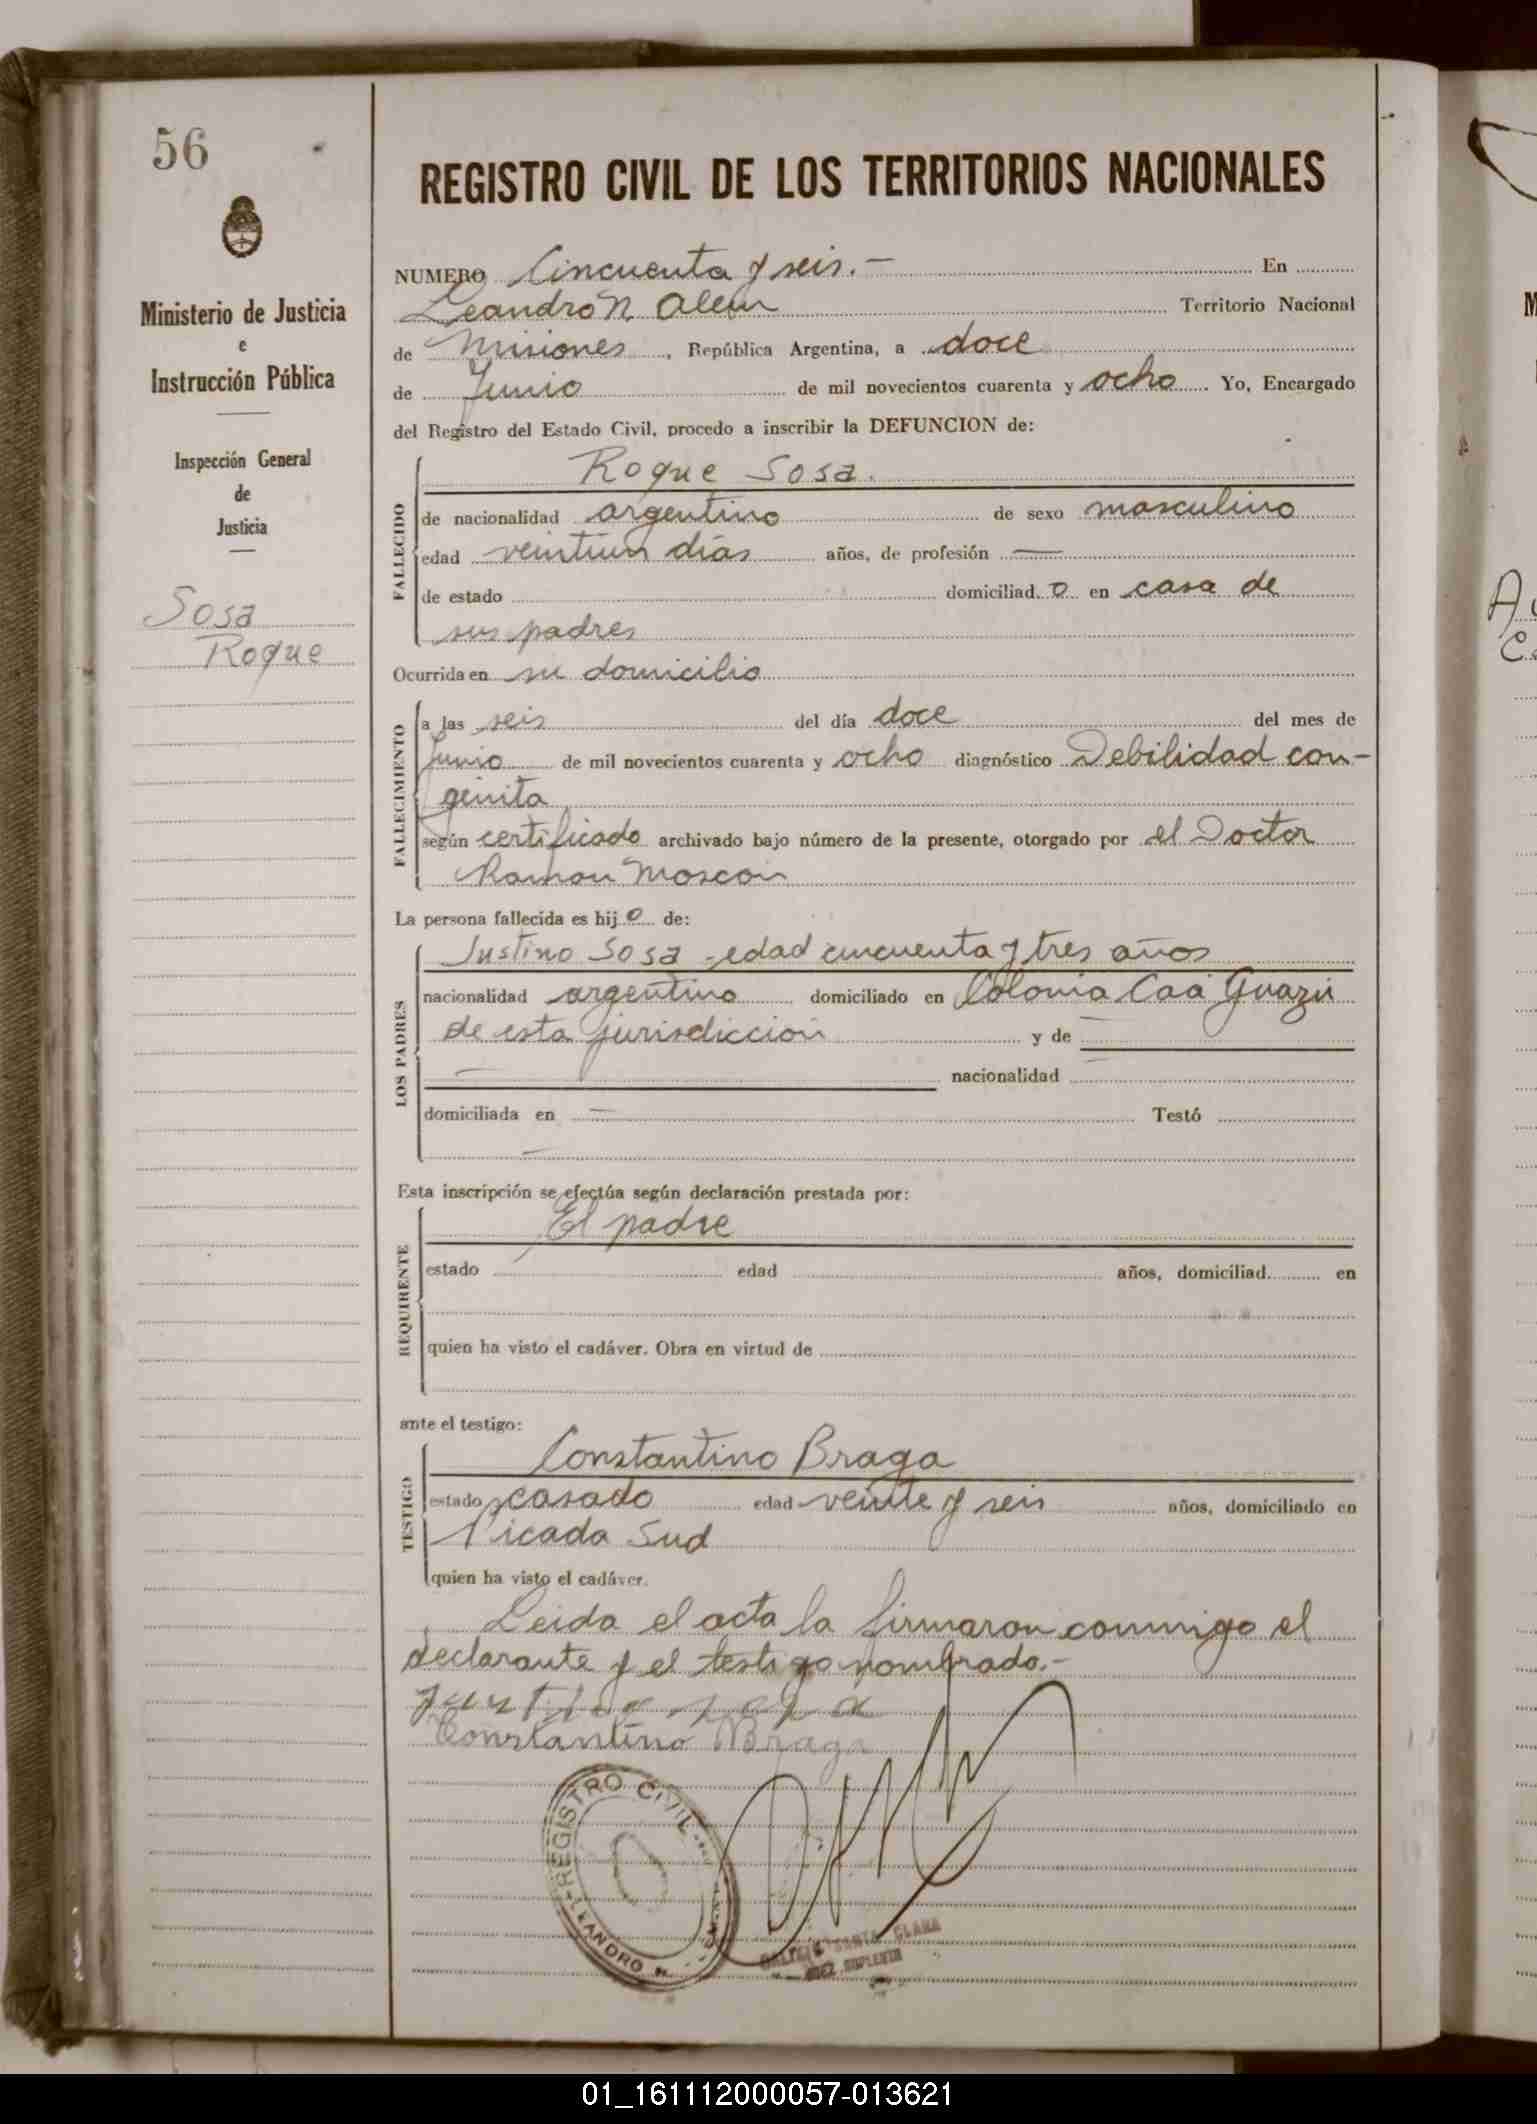 56
Ministerio de Justicia
e
Instrucción Pública
Inspección General
de
Justicia
Sosa
Roque
REGISTRO CIVIL DE LOS TERRITORIOS NACIONALES
NUMERO Cincuenta y seis.— En
Leandro N. Alem Territorio Nacional
de Misiones, República Argentina, a doce
de Junio de mil novecientos cuarenta y ocho. Yo, Encargado
del Registro del Estado Civil, procedo a inscribir la DEFUNCION de:
FALLECIDO
Roque Sosa.
de nacionalidad argentino de sexo masculino
edad veintiun días años, de profesión —
de estado domiciliad o en casa de
sus padres
Ocurrida en su domicilio
FALLECIMIENTO
a las seis del día doce del mes de
Junio de mil novecientos cuarenta y ocho diagnóstico Debilidad con-
genita
según certificado archivado bajo número de la presente, otorgado por el Doctor
Ramon Moscon
La persona fallecida es hij o de:
LOS PADRES
Justino Sosa - edad cincuenta y tres años
nacionalidad argentino domiciliado en Colonia Caá Guazú
de esta jurisdiccion y de —
— nacionalidad —
domiciliada en — Testó
—
Esta inscripción se efectúa según declaración prestada por:
REQUIRENTE
El padre
estado edad años, domiciliad en
quien ha visto el cadáver. Obra en virtud de
ante el testigo:
TESTIGO
Constantino Braga
estado casado edad veinte y seis años, domiciliado en
Picada Sud
quien ha visto el cadáver.
Leida el acta la firmaron conmigo el
declarante y el testigo nombrado.-
Justino Sosa
Constantino Braga
REGISTRO CIVIL
LEANDRO N.
SANTA CLARA
JUEZ SUPLENTE
01_161112000057-013621